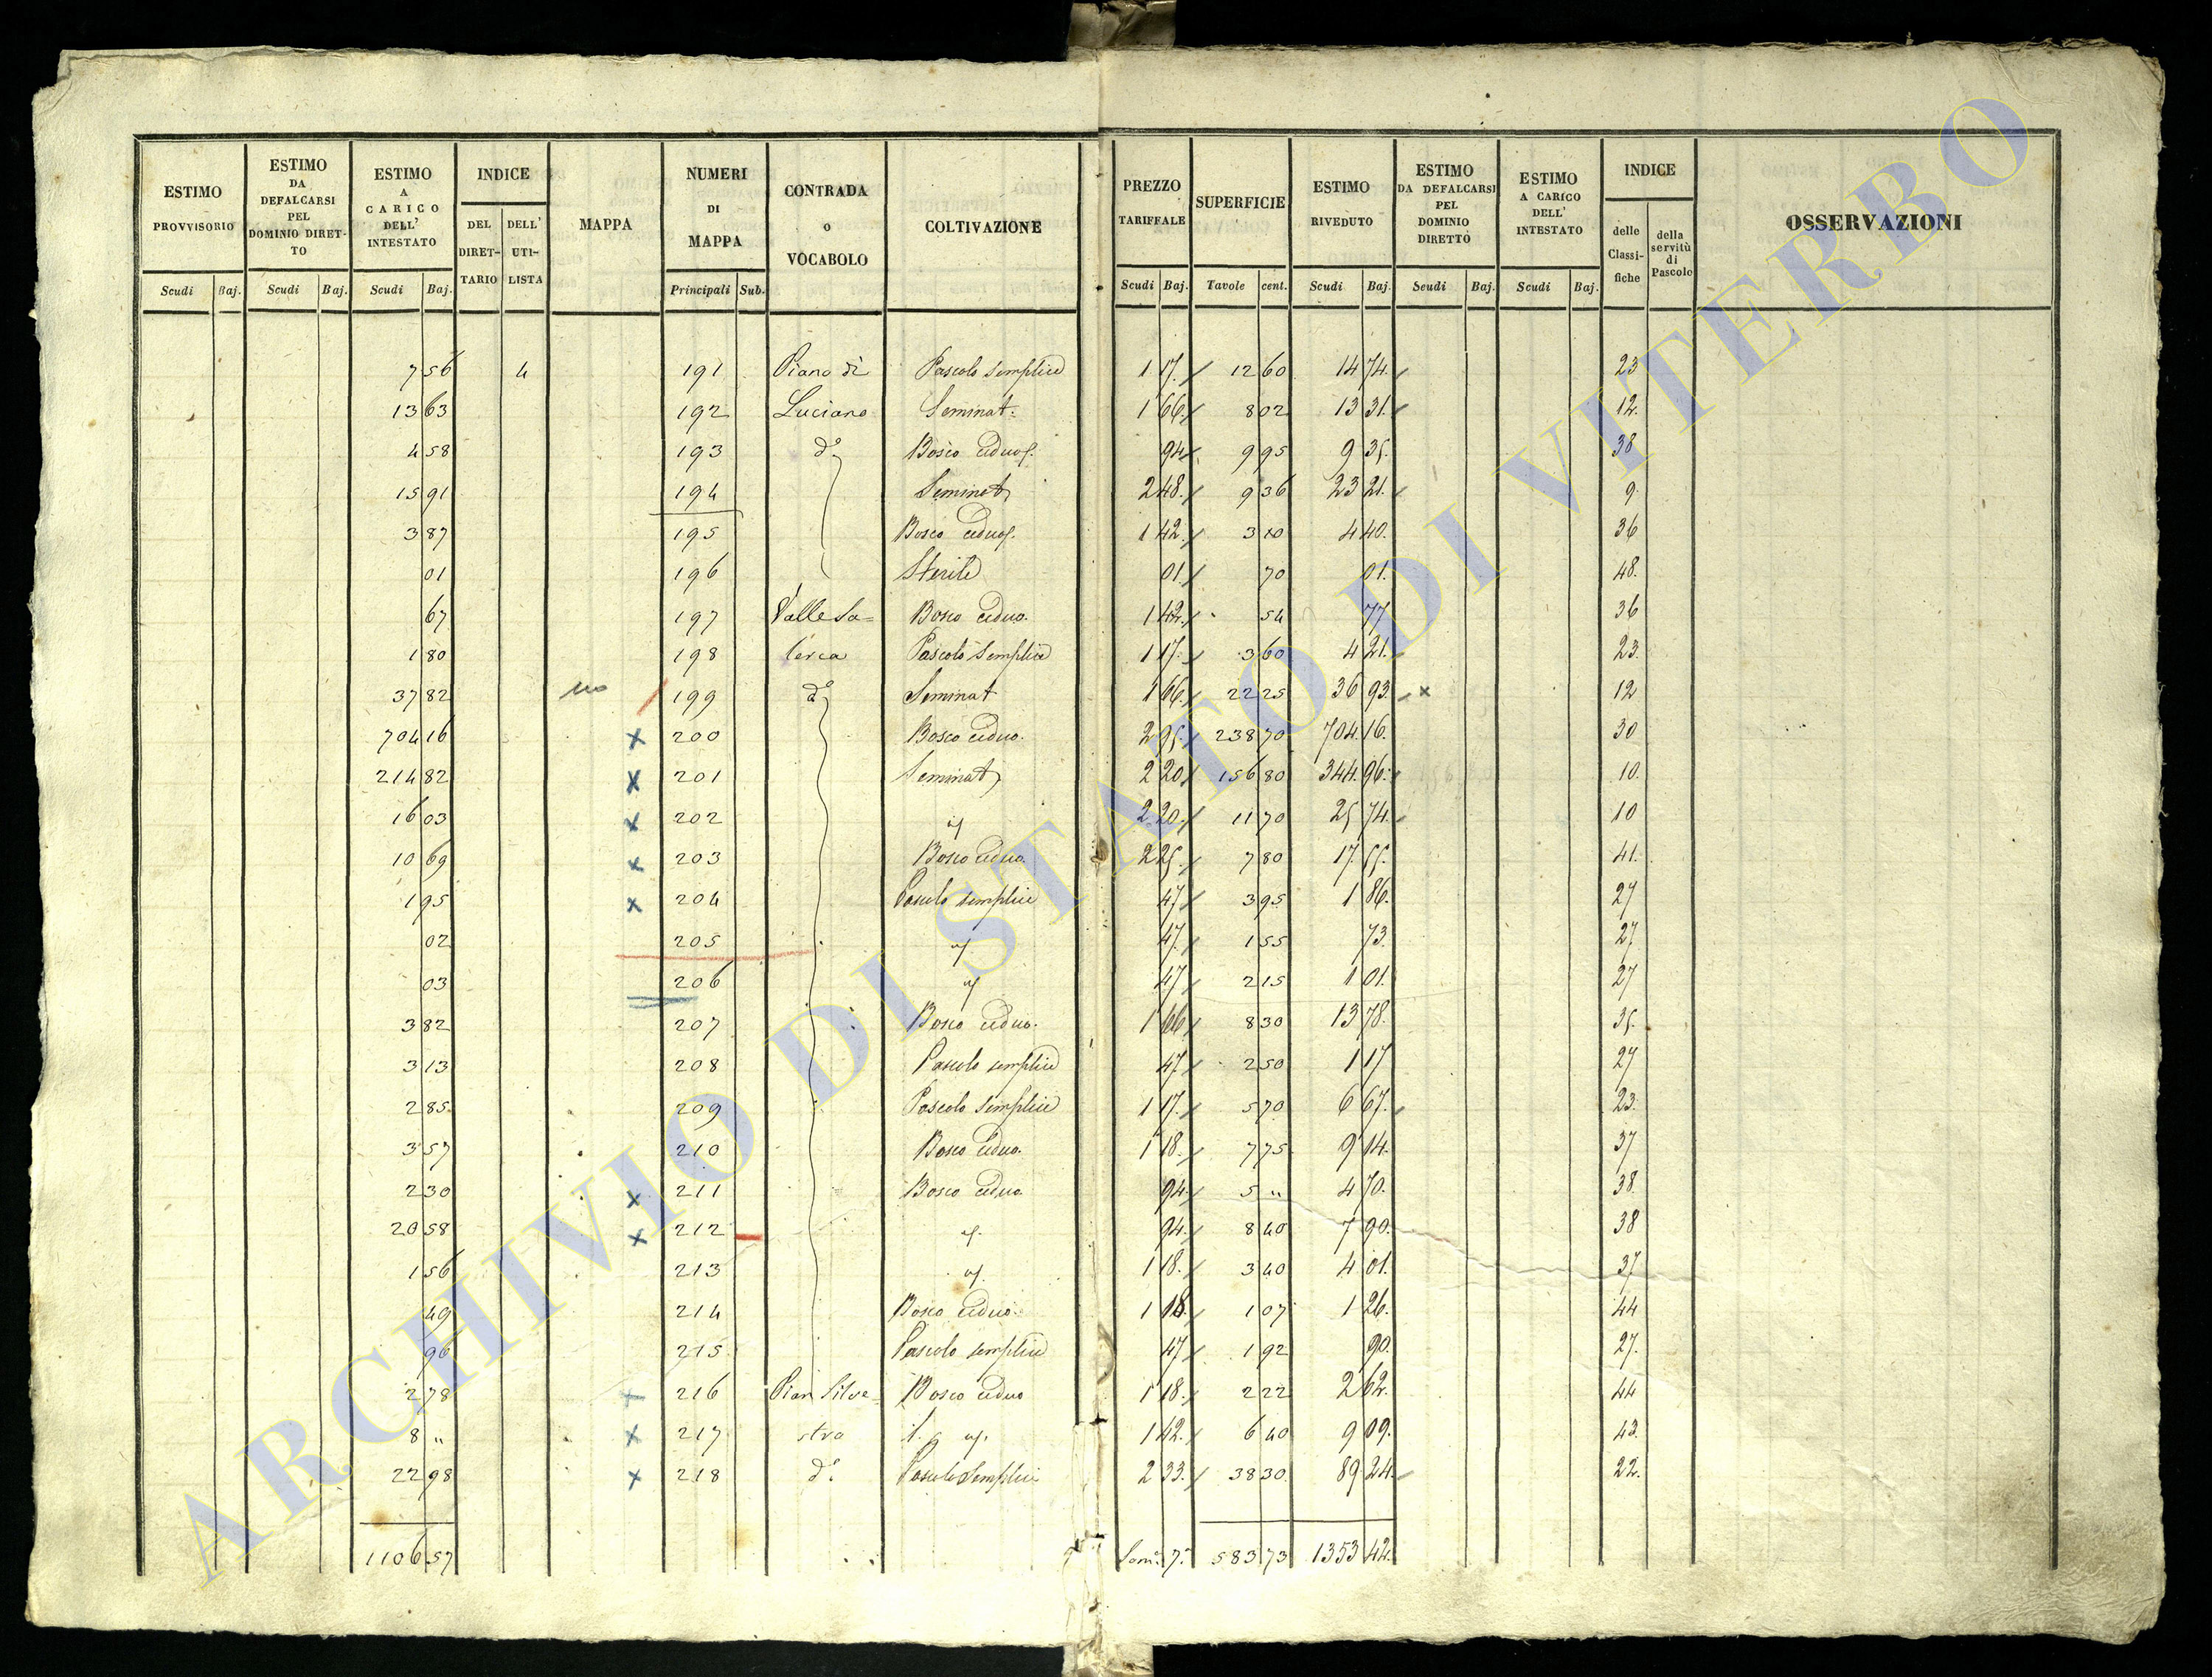 ESTIMO PROVVISORIO
ESTIMO DA DEFALCARSI PEL DOMINIO DIRETTO
ESTIMO A CARICO DELL' INTESTATO
INDICE
DEL DIRETTARIO
DELL' UTILISTA
MAPPA
NUMERI DI MAPPA
CONTRADA o VOCABOLO
COLTIVAZIONE
PREZZO TARIFFALE
SUPERFICIE
ESTIMO RIVEDUTO
ESTIMO DA DEFALCARSI PEL DOMINIO DIRETTO
ESTIMO A CARICO DELL' INTESTATO
INDICE
delle Classifiche
della servitù di Pascolo
OSSERVAZIONI
Scudi Baj. Scudi Baj. Scudi Baj. Principali Sub. Scudi Baj. Tavole cent. Scudi Baj. Scudi Baj. Scudi Baj.
7 56 4 191 Piano di Pascolo semplice 1 17. 12 60 14 74. 23
13 63 192 Luciano Seminat: 1 66. 8 02 13 31. 12.
4 58 193 d.º Bosco ceduo 94 9 95 9 35. 38
15 91 194 Seminat 2 48. 9 36 23 21. 9.
3 87 195 Bosco ceduo 1 42. 3 10 4 40. 36
01 196 Sterile 01. 70 01. 48.
67 197 Valle Sa= Bosco ceduo. 1 42. 54 77 36
1 80 198 lerca Pascolo Semplice 1 17. 3 60 4 21. 23.
37 82 no 199 d.º Seminat 1 66. 22 25 36 93. x 12
704 16 x 200 Bosco ceduo. 2 95. 238 70 704. 16. 30
214 82 x 201 Seminat 2 20 156 80 344. 96. 10.
16 03 x 202 id 2 20. 11 70 25 74. 10
10 69 x 203 Bosco ceduo. 2 25. 7 80 17. 55. 41.
1 95 x 204 Pascolo semplice 47 3 95 1 86. 27
02 205 id 47. 1 55 73. 27
03 206 id 47 2 15 1 01. 27
3 82 207 Bosco ceduo. 1 66 8 30 13 78. 35.
3 13 208 Pascolo semplice 47. 2 50 1 17 27
2 85. 209 Pascolo Semplice 1 17. 5 70 6 67. 23.
3 57 210 Bosco ceduo. 1 18. 7 75 9 14. 37
2 30 x 211 Bosco ceduo 94. 5 " 4 70. 38.
20 58 x 212 id. 94. 8 40 7 90. 38
1 56 213 id. 1 18. 3 40 4 01. 37
49 214 Bosco ceduo. 1 18. 1 07 1 26. 44
96 215 Pascolo semplice 47 1 92 90. 27.
2 78 x 216 Pian Silve= Bosco ceduo 1 18. 2 22 2 62. 44
8 " x 217 stro id. 1 42. 6 40 9 09. 43.
22 98 x 218 d.º Pascolo Semplice 2 33. 38 30. 89 24. 22.
1106 57 Som.ª 7.ª 583 73 1353 42.
ARCHIVIO DI STATO DI VITERBO